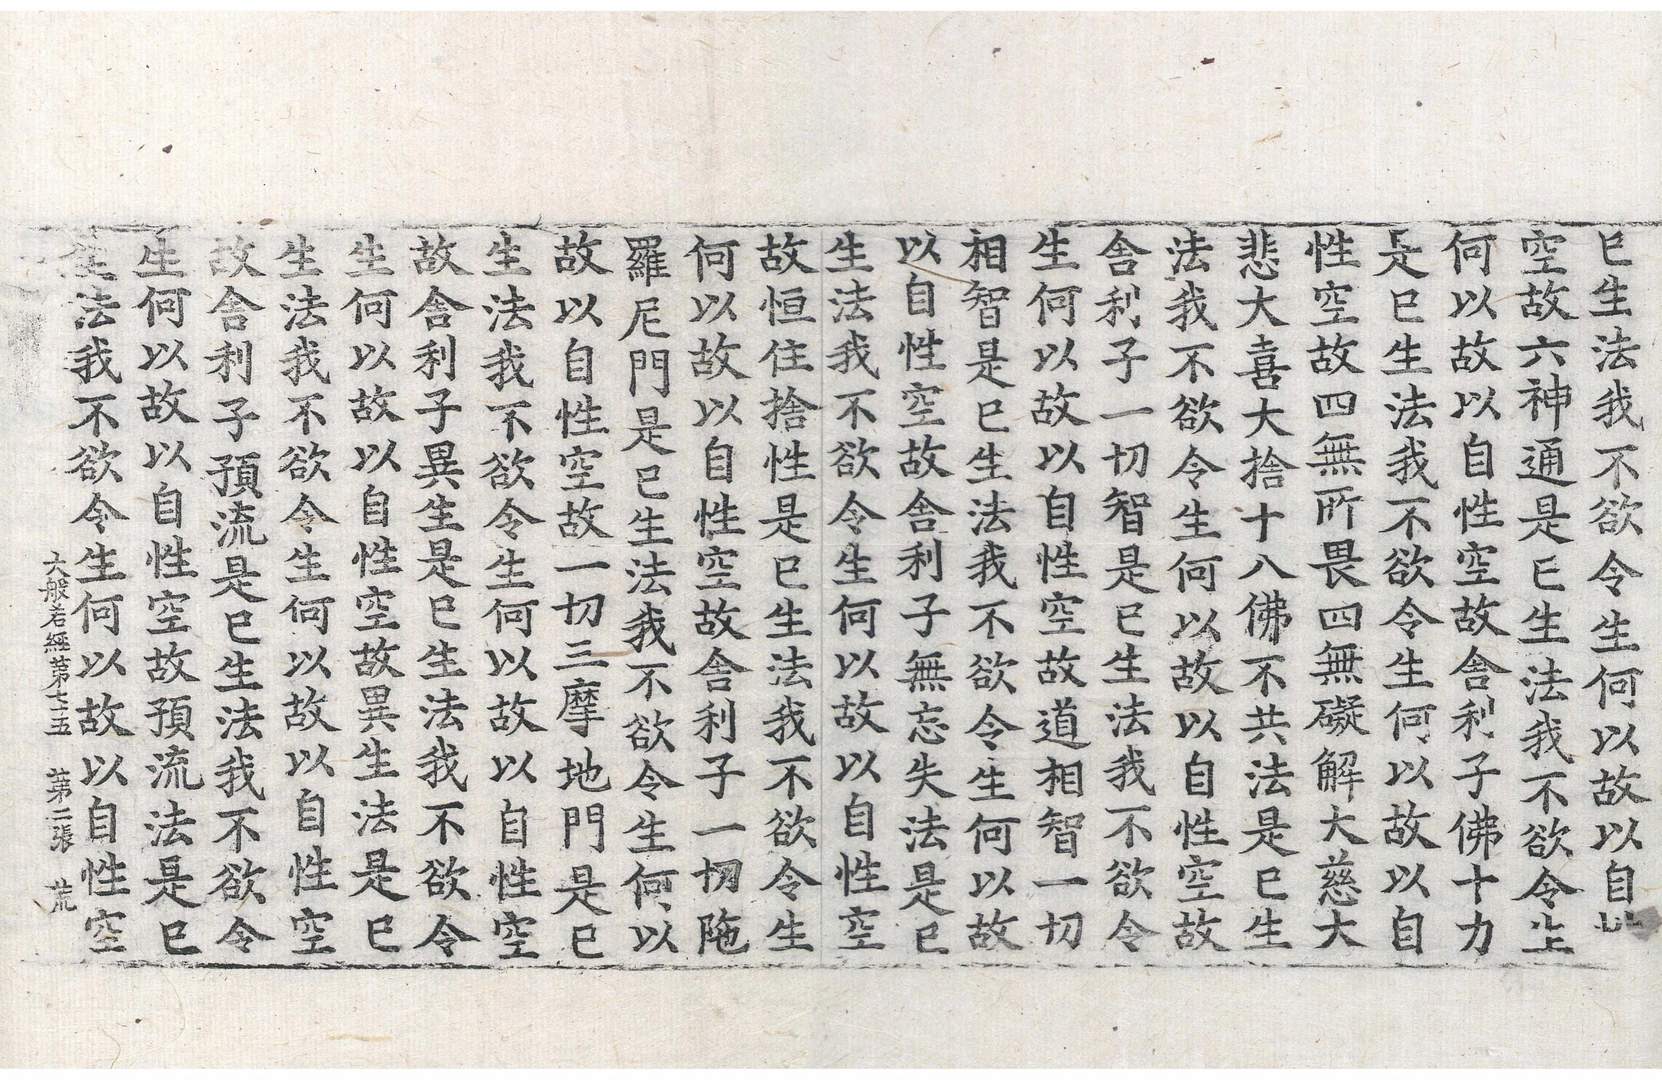 已生法我不欲令生何以故以自
空故六神通是已生法我不欲令生
何以故以自性空故舍利子佛十力
是已生法我不欲令生何以故以自
性空故四無所畏四無礙解大慈大
悲大喜大捨十八佛不共法是已生
法我不欲令生何以故以自性空故
舍利子一切智是已生法我不欲令
生何以故以自性空故道相智一切
相智是已生法我不欲令生何以故
以自性空故舍利子無忘失法是已
生法我不欲令生何以故以自性空
故恒住捨性是已生法我不欲令生
何以故以自性空故舍利子一切陁
羅尼門是已生法我不欲令生何以
故以自性空故一切三摩地門是已
生法我不欲令生何以故以自性空
故舍利子異生是已生法我不欲令
生何以故以自性空故異生法是已
生法我不欲令生何以故以自性空
故舍利子預流是已生法我不欲令
生何以故以自性空故預流法是已
生法我不欲令生何以故以自性空
大般若經第七十五 第二張 荒